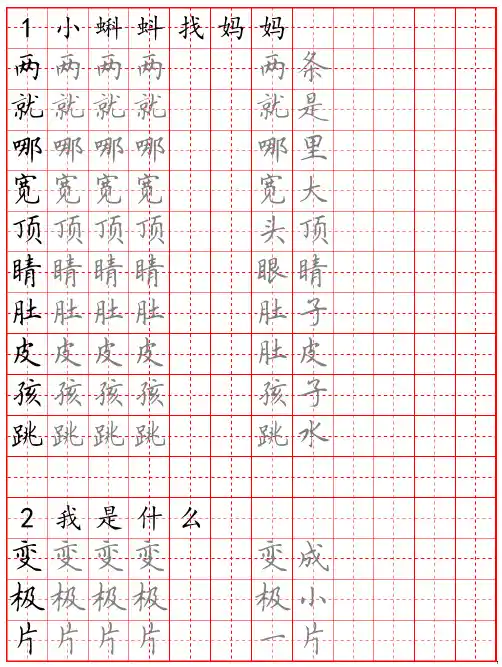 1 小蝌蚪找妈妈
两 两 两 两 两条
就 就 就 就 就是
哪 哪 哪 哪 哪里
宽 宽 宽 宽 宽大
顶 顶 顶 顶 头顶
睛 睛 睛 睛 眼睛
肚 肚 肚 肚 肚子
皮 皮 皮 皮 肚皮
孩 孩 孩 孩 孩子
跳 跳 跳 跳 跳水
2 我是什么
变 变 变 变 变成
极 极 极 极 极小
片 片 片 片 一片